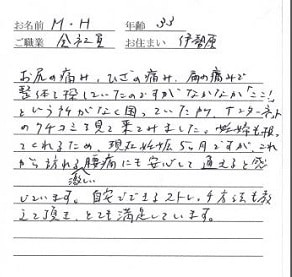 お名前 M・H 年齢 33
ご職業 会社員 お住まい 伊勢原
お尻の痛み、ひざの痛み、肩の痛みで
整体を探していたのですがなかなか「ここ!」
という所がなく困っていた所、インターネット
の口コミを見て来てみました。妊婦も
てくれるため、現在妊娠5ヶ月ですが、これ
から訪れる腰痛にも安心して通えると感
激しています。自宅でできるストレッチ方法も教
えて頂き、とても満足しています。